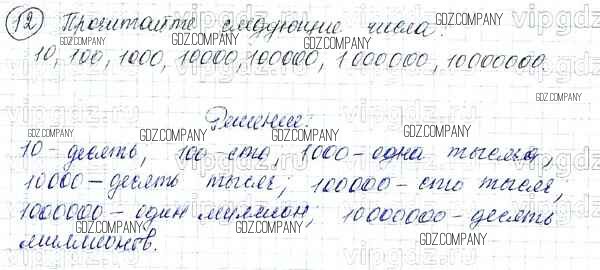 12 Прочитайте следующие числа:
10, 100, 1000, 10000, 100000, 1000000, 10000000.
Решение:
10 – десять, 100 – сто, 1000 – одна тысяча,
10000 – десять тысяч; 100000 – сто тысяч,
1000000 – один миллион; 10000000 – десять
миллионов.